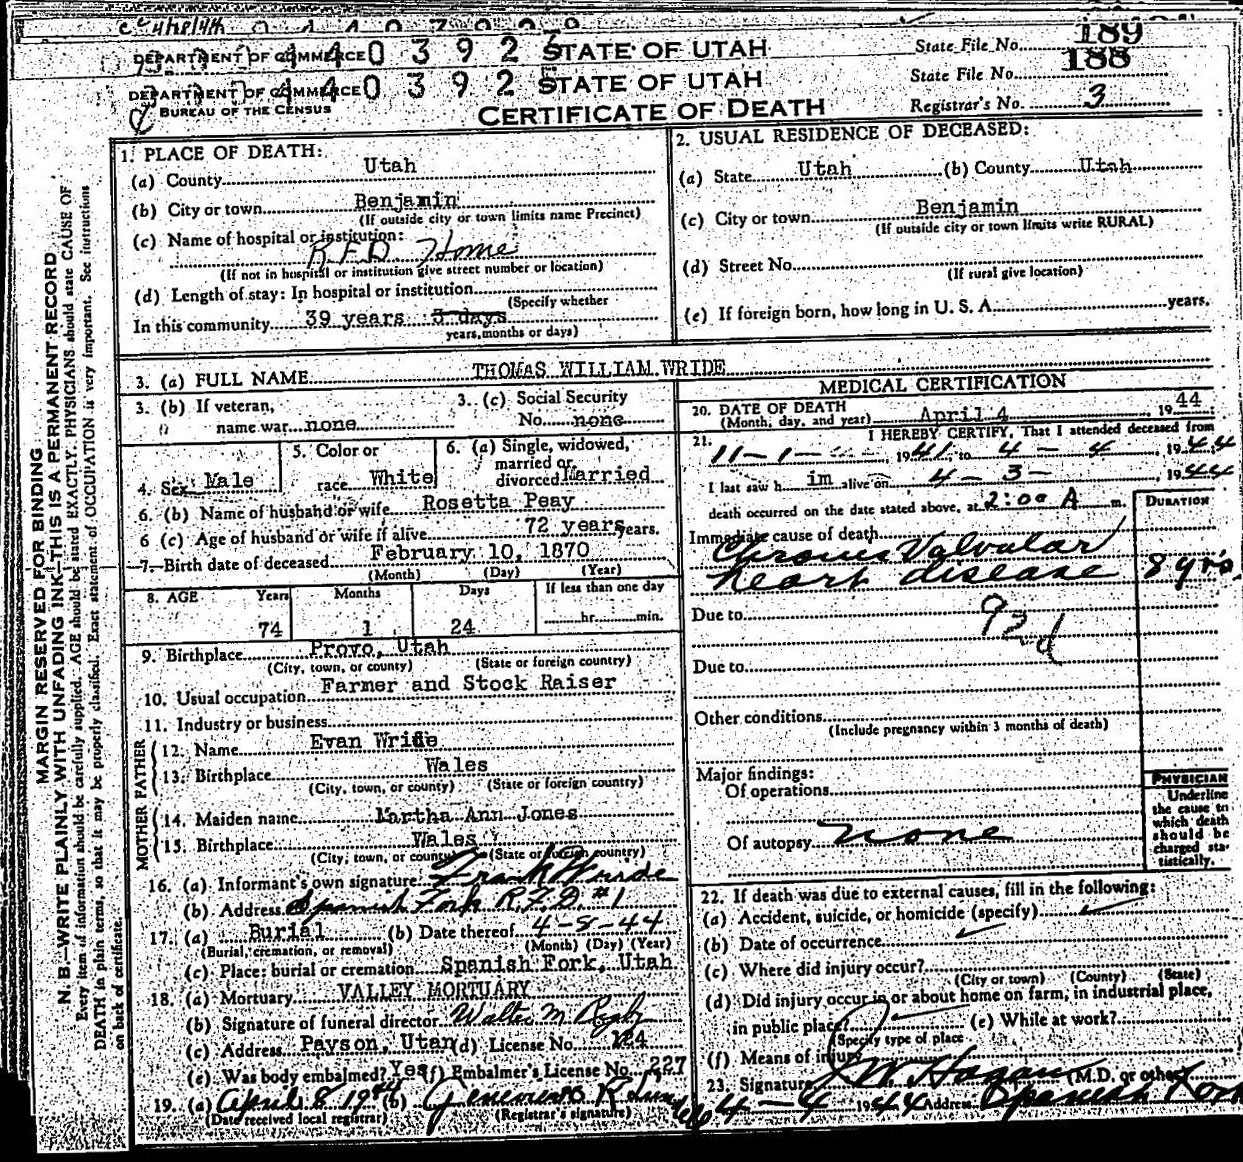 DEPARTMENT OF COMMERCE STATE OF UTAH State File No. 189
DEPARTMENT OF COMMERCE STATE OF UTAH State File No. 188
BUREAU OF THE CENSUS CERTIFICATE OF DEATH Registrar's No. 3
MARGIN RESERVED FOR BINDING
N. B.—WRITE PLAINLY WITH UNFADING INK—THIS IS A PERMANENT RECORD
Every item of information should be carefully supplied. AGE should be stated EXACTLY. PHYSICIANS should state CAUSE OF
DEATH in plain terms, so that it may be properly classified. Exact statement of OCCUPATION is very important. See instructions
on back of certificate.
1. PLACE OF DEATH:
(a) County Utah
(b) City or town Benjamin
(If outside city or town limits name Precinct)
(c) Name of hospital or institution:
R.F.D. Home
(If not in hospital or institution give street number or location)
(d) Length of stay: In hospital or institution
(Specify whether
In this community 39 years 3 days
years, months or days)
2. USUAL RESIDENCE OF DECEASED:
(a) State Utah (b) County Utah
(c) City or town Benjamin
(If outside city or town limits write RURAL)
(d) Street No.
(If rural give location)
(e) If foreign born, how long in U. S. A. years.
3. (a) FULL NAME THOMAS WILLIAM WRIDE
3. (b) If veteran, 3. (c) Social Security
name war none No. none
4. Sex Male 5. Color or race White 6. (a) Single, widowed, married or divorced Married
6. (b) Name of husband or wife Rosetta Peay
6 (c) Age of husband or wife if alive 72 years years.
7. Birth date of deceased February 10, 1870
(Month) (Day) (Year)
8. AGE Years Months Days If less than one day
74 1 24 hr. min.
9. Birthplace Provo, Utah
(City, town, or county) (State or foreign country)
10. Usual occupation Farmer and Stock Raiser
11. Industry or business
FATHER
12. Name Evan Wride
13. Birthplace Wales
(City, town, or county) (State or foreign country)
MOTHER
14. Maiden name Martha Ann Jones
15. Birthplace Wales
(City, town, or county) (State or foreign country)
16. (a) Informant's own signature: Frank Wride
(b) Address Spanish Fork R.F.D #1
17. (a) Burial (b) Date thereof 4-8-44
(Burial, cremation, or removal) (Month) (Day) (Year)
(c) Place: burial or cremation Spanish Fork, Utah
18. (a) Mortuary VALLEY MORTUARY
(b) Signature of funeral director Walter M Rigby
(c) Address Payson, Utah (d) License No. 224
(e) Was body embalmed? Yes (f) Embalmer's License No. 227
19. (a) April 8 1944 (b)
(Date received local registrar) (Registrar's signature)
MEDICAL CERTIFICATION
20. DATE OF DEATH
(Month, day, and year) April 4, 1944
21. I HEREBY CERTIFY, That I attended deceased from
11-1-, 1941 to 4 - 4, 1944
I last saw h im alive on 4 - 3 -, 1944
death occurred on the date stated above, at 2:00 A m. DURATION
Immediate cause of death
Chronic Valvular
heart disease 8 yrs.
Due to 92d
Due to
Other conditions
(Include pregnancy within 3 months of death)
Major findings:
Of operations
Of autopsy none
PHYSICIAN
Underline
the cause to
which death
should be
charged sta-
tistically.
22. If death was due to external causes, fill in the following:
(a) Accident, suicide, or homicide (specify)
(b) Date of occurrence
(c) Where did injury occur?
(City or town) (County) (State)
(d) Did injury occur in or about home on farm, in industrial place,
in public place? (e) While at work?
(Specify type of place
(f) Means of injury
23. Signature (M.D. or other)
4-4 1944 Address Spanish Fork